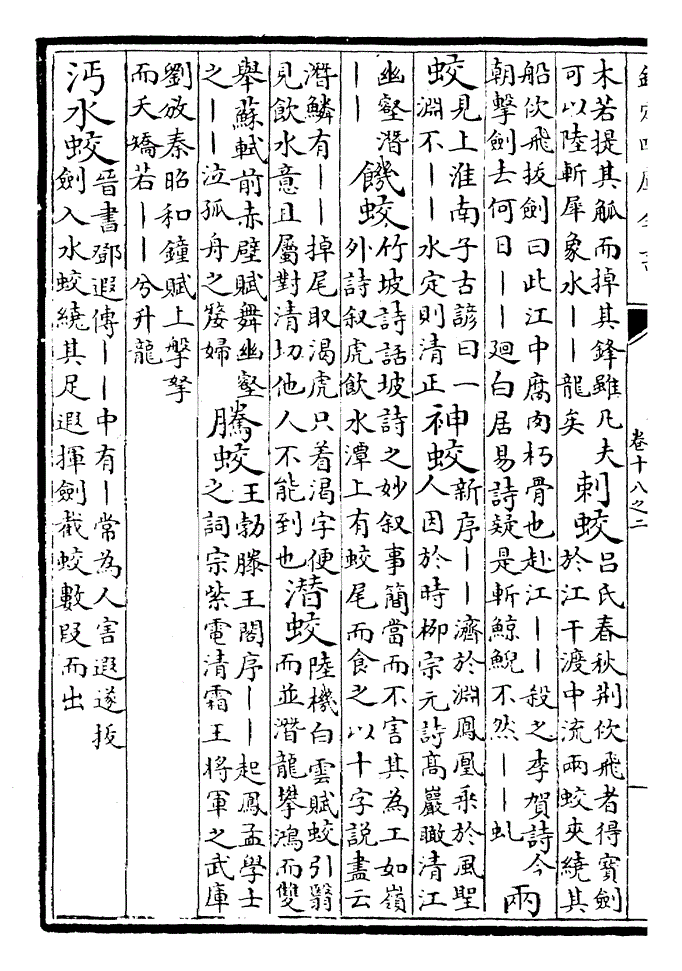 欽定四庫全書
卷十八之二
木若提其觚而掉其鋒雖凡夫
可以陸斬犀象水丨龍矣
刺蛟
呂氏春秋荆佽飛者得寳劍
於江干渡中流兩蛟夾繞其
船佽飛拔劍曰此江中腐肉朽骨也赴江丨丨殺之李賀詩今
朝擊劍去何日丨丨廻白居易詩疑是斬鯨鯢不然丨丨虬
兩
蛟
見上淮南子古諺曰一
淵不丨丨水定則清正
神蛟
新序丨丨濟於淵鳳凰乘於風聖
人因於時栁宗元詩高巖瞰清江
幽壑潛
丨丨
饑蛟
竹坡詩話坡詩之妙叙事簡當而不害其為工如嶺
外詩叙虎飲水潭上有蛟尾而食之以十字説盡云
潛鱗有丨丨掉尾取渴虎只着渴字便
見飲水意且屬對清切他人不能到也
潛蛟
陸機白雲賦蛟引翳
而並潛龍攀鴻而雙
舉蘇軾前赤壁賦舞幽壑
之丨丨泣孤舟之嫠婦
騰蛟
王勃滕王閣序丨丨起鳳孟學士
之詞宗紫電清霜王將軍之武庫
劉攽秦昭和鐘賦上槃拏
而夭矯若丨丨兮升龍
沔水蛟
晉書鄧遐傳丨丨中有丨常為人害遐遂拔
劍入水蛟繞其足遐揮劍截蛟數段而出